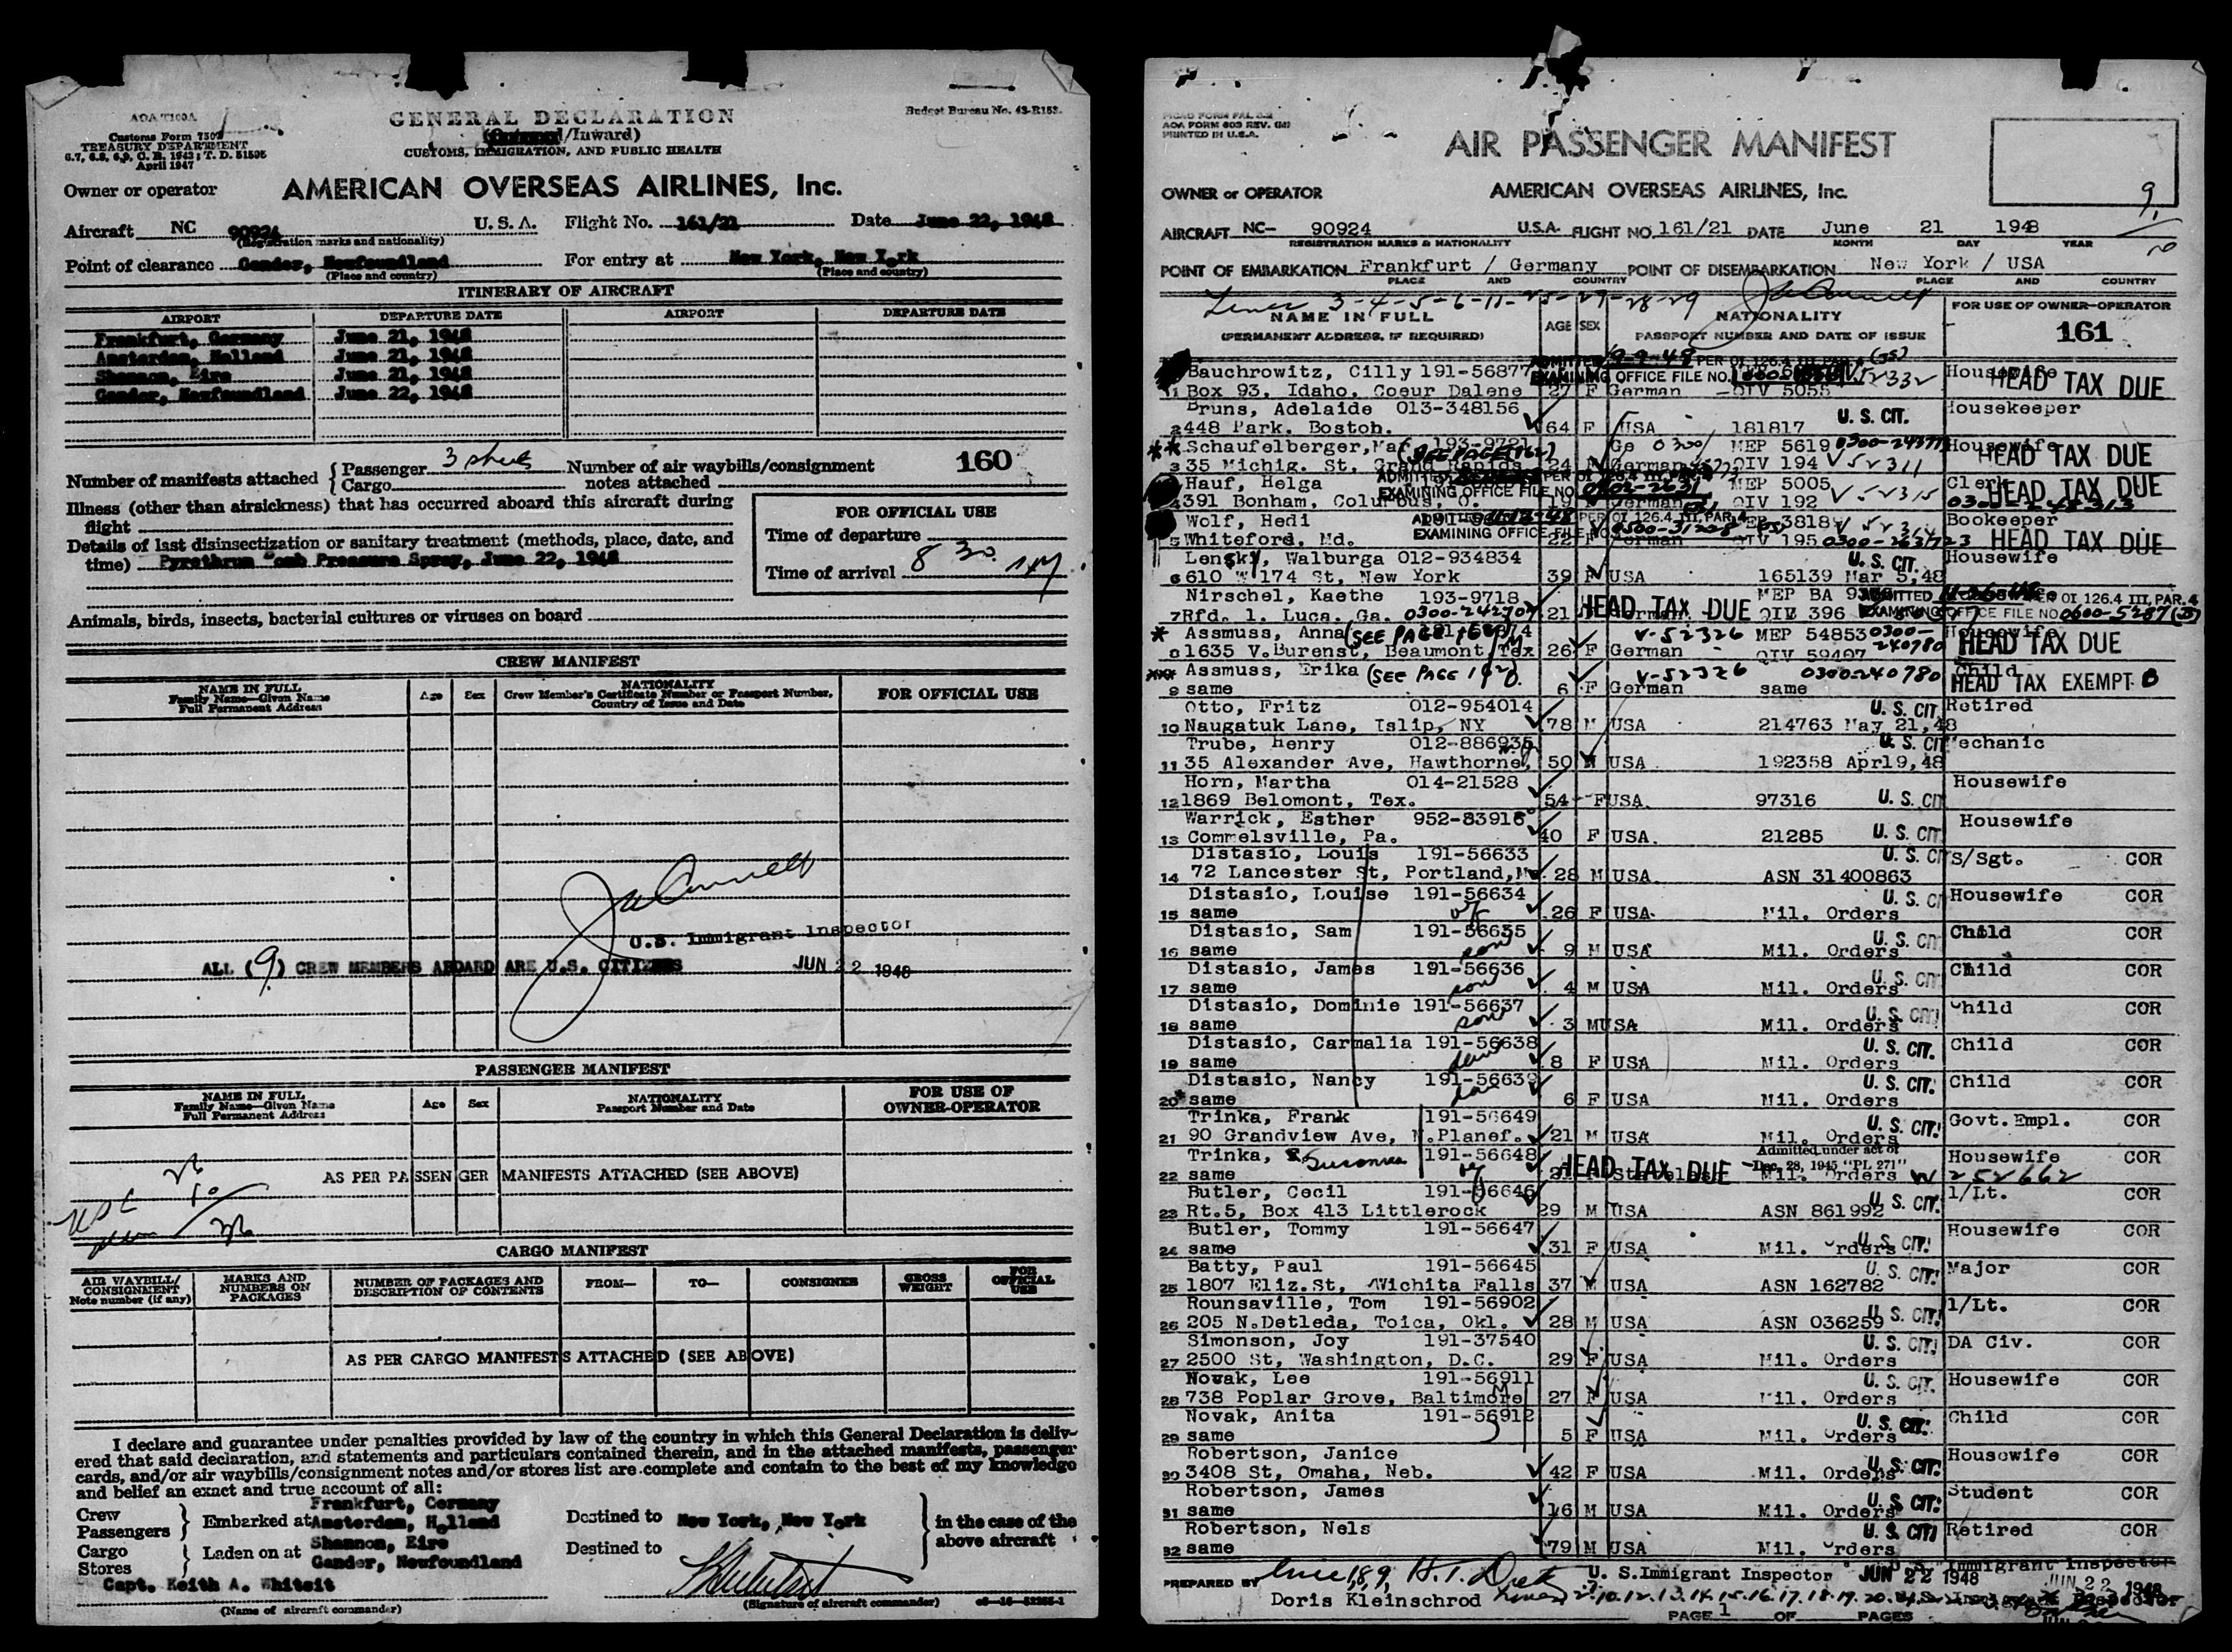 AOA T100A
Customs Form 7507
TREASURY DEPARTMENT
6.7, 6.8, 6.9, C. R. 1943; T. D. 51505
April 1947
GENERAL DECLARATION
/Inward)
CUSTOMS, IMMIGRATION, AND PUBLIC HEALTH
Budget Bureau No. 43-R153.
Owner or operator AMERICAN OVERSEAS AIRLINES, Inc.
Aircraft NC 90924 U.S.A. Flight No. 161/21 Date June 22, 1948
(Registration marks and nationality)
Point of clearance Gander, Newfoundland For entry at New York, New York
(Place and country) (Place and country)
ITINERARY OF AIRCRAFT
AIRPORT DEPARTURE DATE AIRPORT DEPARTURE DATE
Frankfurt, Germany June 21, 1948
Amsterdam, Holland June 21, 1948
Shannon, Eire June 21, 1948
Gander, Newfoundland June 22, 1948
Number of manifests attached { Passenger 3 sheets Number of air waybills/consignment 160
Cargo notes attached
Illness (other than airsickness) that has occurred aboard this aircraft during
flight
Details of last disinsectization or sanitary treatment (methods, place, date, and
time) Pyrethrum Bomb Pressure Spray, June 22, 1948
FOR OFFICIAL USE
Time of departure
Time of arrival 8 30
Animals, birds, insects, bacterial cultures or viruses on board
CREW MANIFEST
NAME IN FULL
Family Name—Given Name
Full Permanent Address
Age Sex
NATIONALITY
Crew Member's Certificate Number or Passport Number,
Country of Issue and Date
FOR OFFICIAL USE
U.S. Immigrant Inspector
ALL (9) CREW MEMBERS ABOARD ARE U.S. CITIZENS JUN 22 1948
PASSENGER MANIFEST
NAME IN FULL
Family Name—Given Name
Full Permanent Address
Age Sex
NATIONALITY
Passport Number and Date
FOR USE OF
OWNER-OPERATOR
AS PER PASSENGER MANIFESTS ATTACHED (SEE ABOVE)
CARGO MANIFEST
AIR WAYBILL/
CONSIGNMENT
Note number (if any)
MARKS AND
NUMBERS ON
PACKAGES
NUMBER OF PACKAGES AND
DESCRIPTION OF CONTENTS
FROM— TO— CONSIGNEE
GROSS
WEIGHT
FOR
OFFICIAL
USE
AS PER CARGO MANIFESTS ATTACHED (SEE ABOVE)
I declare and guarantee under penalties provided by law of the country in which this General Declaration is deliv-
ered that said declaration, and statements and particulars contained therein, and in the attached manifests, passenger
cards, and/or air waybills/consignment notes and/or stores list are complete and contain to the best of my knowledge
and belief an exact and true account of all:
Crew
Passengers } Embarked at Frankfurt, Germany
Amsterdam, Holland
Destined to New York, New York
Cargo
Stores } Laden on at Shannon, Eire
Gander, Newfoundland
Destined to
} in the case of the
above aircraft
Capt. Keith A. Whitsit
(Name of aircraft commander) (Signature of aircraft commander)
AOA FORM 603 REV.
PRINTED IN U.S.A.
AIR PASSENGER MANIFEST
OWNER or OPERATOR AMERICAN OVERSEAS AIRLINES, Inc.
AIRCRAFT NC- 90924 U.S.A. FLIGHT NO. 161/21 DATE June 21 1948
REGISTRATION MARKS & NATIONALITY MONTH DAY YEAR
POINT OF EMBARKATION Frankfurt / Germany POINT OF DISEMBARKATION New York / USA
PLACE AND COUNTRY PLACE AND COUNTRY
NAME IN FULL
(PERMANENT ADDRESS, IF REQUIRED)
AGE SEX
NATIONALITY
PASSPORT NUMBER AND DATE OF ISSUE
FOR USE OF OWNER-OPERATOR
161
Bauchrowitz, Cilly 191-56877 Housewife
1 Box 93, Idaho, Coeur Dalene 27 F German QIV 5055 HEAD TAX DUE
Bruns, Adelaide 013-348156 U. S. CIT. Housekeeper
2 448 Park. Boston. 64 F USA 181817
** Schaufelberger, Mar 193-9721 (SEE PAGE 162) MEP 5619 Housewife
3 35 Michig. St, Grand Rapids 24 F German QIV 194 V52311 HEAD TAX DUE
Hauf, Helga MEP 5005 Clerk
4 391 Bonham, Columbus, O. 19 F German QIV 192 V52315 HEAD TAX DUE
0300-248313
Wolf, Hedi 3818 Bookeeper
5 Whiteford, Md. 22 F German QIV 195 HEAD TAX DUE
Lensky, Walburga 012-934834 U. S. CIT. Housewife
6 610 W 174 St, New York 39 F USA 165139 Mar 5, 48
Nirschel, Kaethe 193-9718 MEP BA
7 Rfd. 1. Luca. Ga. 0300-242707 21 F German QIV 396 HEAD TAX DUE
* Assmuss, Anna V-52326 MEP 54853 Housewife
8 1635 V.Burenst, Beaumont, Tex 26 F German QIV 59407 0300-240780 HEAD TAX DUE
*** Assmuss, Erika (SEE PAGE 162) V-52326 0300240780 Child
9 same 6 F German same HEAD TAX EXEMPT
Otto, Fritz 012-954014 U. S. CIT Retired
10 Naugatuk Lane, Islip, NY 78 M USA 214763 May 21, 48
Trube, Henry 012-886935 U. S. CIT Mechanic
11 35 Alexander Ave, Hawthorne, 50 M USA 192358 Apr19, 48
Horn, Martha 014-21528 Housewife
12 1869 Belomont, Tex. 54 F USA 97316 U. S. CIT
Warrick, Esther 952-83916 Housewife
13 Commelsville, Pa. 40 F USA. 21285 U. S. CIT
Distasio, Louis 191-56633 U. S. CIT S/Sgt. COR
14 72 Lancester St, Portland, Me. 28 M USA ASN 31400863
Distasio, Louise 191-56634 U. S. CIT Housewife COR
15 same wf 26 F USA Mil. Orders
Distasio, Sam 191-56635 U. S. CIT Child COR
16 same son 9 M USA Mil. Orders
Distasio, James 191-56636 U. S. CIT Child COR
17 same son 4 M USA Mil. Orders
Distasio, Dominie 191-56637 U. S. CIT Child COR
18 same son 3 M USA Mil. Orders
Distasio, Carmalia 191-56638 U. S. CIT. Child COR
19 same dau 8 F USA Mil. Orders
Distasio, Nancy 191-56639 U. S. CIT. Child COR
20 same dau 6 F USA Mil. Orders
Trinka, Frank 191-56649 U. S. CIT. Govt. Empl. COR
21 90 Grandview Ave, N.Planef. 21 M USA Mil. Orders
Trinka, Susanna 191-56648 Admitted under act of Dec. 28, 1945 "PL 271" Housewife COR
22 same HEAD TAX DUE Mil. Orders 252662
Butler, Cecil 191-56646 U. S. CIT. 1/Lt. COR
23 Rt.5, Box 413 Littlerock 29 M USA ASN 861992
Butler, Tommy 191-56647 U. S. CIT. Housewife COR
24 same 31 F USA Mil. Orders
Batty, Paul 191-56645 U. S. CIT. Major COR
25 1807 Eliz.St, Wichita Falls 37 M USA ASN 162782
Rounsaville, Tom 191-56902 U. S. CIT. 1/Lt. COR
26 205 N.Detleda, Toica, Okl. 28 M USA ASN 036259
Simonson, Joy 191-37540 U. S. CIT. DA Civ. COR
27 2500 St, Washington, D.C. 29 F USA Mil. Orders
Novak, Lee 191-56911 U. S. CIT. Housewife COR
28 738 Poplar Grove, Baltimore 27 F USA Mil. Orders
Novak, Anita 191-56912 U. S. CIT. Child COR
29 same 5 F USA Mil. Orders
Robertson, Janice Housewife COR
30 3408 St, Omaha, Neb. 42 F USA Mil. Orders U. S. CIT.
Robertson, James U. S. CIT. Student COR
31 same 16 M USA Mil. Orders
Robertson, Nels U. S. CIT Retired COR
32 same 79 M USA Mil. Orders
PREPARED BY U. S. Immigrant Inspector JUN 22 1948
Doris Kleinschrod
PAGE 1 OF PAGES